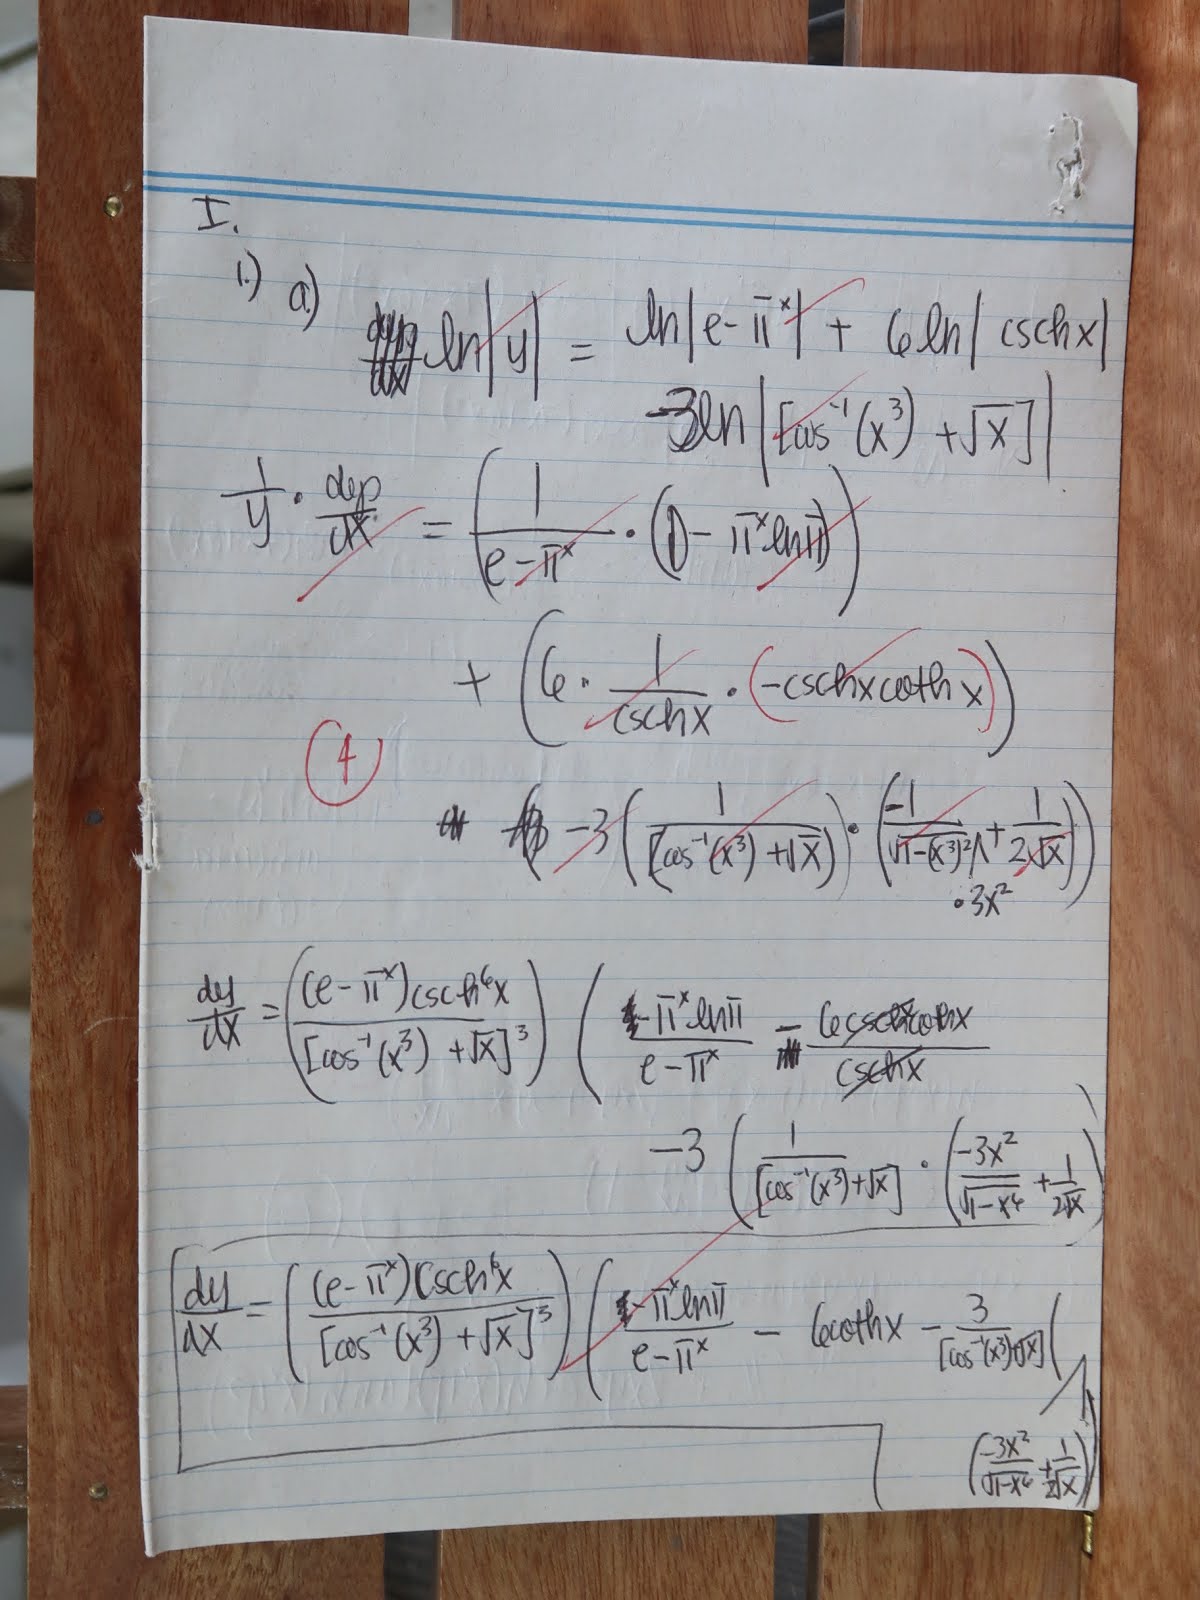 I.
1.) a.) ln|y| = ln|e-π^x| + 6ln|cschx|
-3ln|[cos⁻¹(x³) + √x]|
1/y · dy/dx = (1/(e-π^x) · (0 - π^x lnπ))
+ (6 · 1/cschx · (-cschxcothx))
4
-3(1/[cos⁻¹(x³) + √x) · (-1/√1-(x³)² + 1/2√x))
· 3x²
dy/dx = ((e-π^x)csch⁶x/[cos⁻¹(x³) + √x]³) (-π^x lnπ/(e-π^x) - 6cschxcothx/cschx
-3 (1/[cos⁻¹(x³)+√x] · (-3x²/√1-x⁶ + 1/2√x)
dy/dx = ((e-π^x)csch⁶x/[cos⁻¹(x³) + √x]³) (-π^x lnπ/(e-π^x) - 6cothx - 3/[cos⁻¹(x³)+√x] (
(-3x²/√1-x⁶ + 1/2√x))